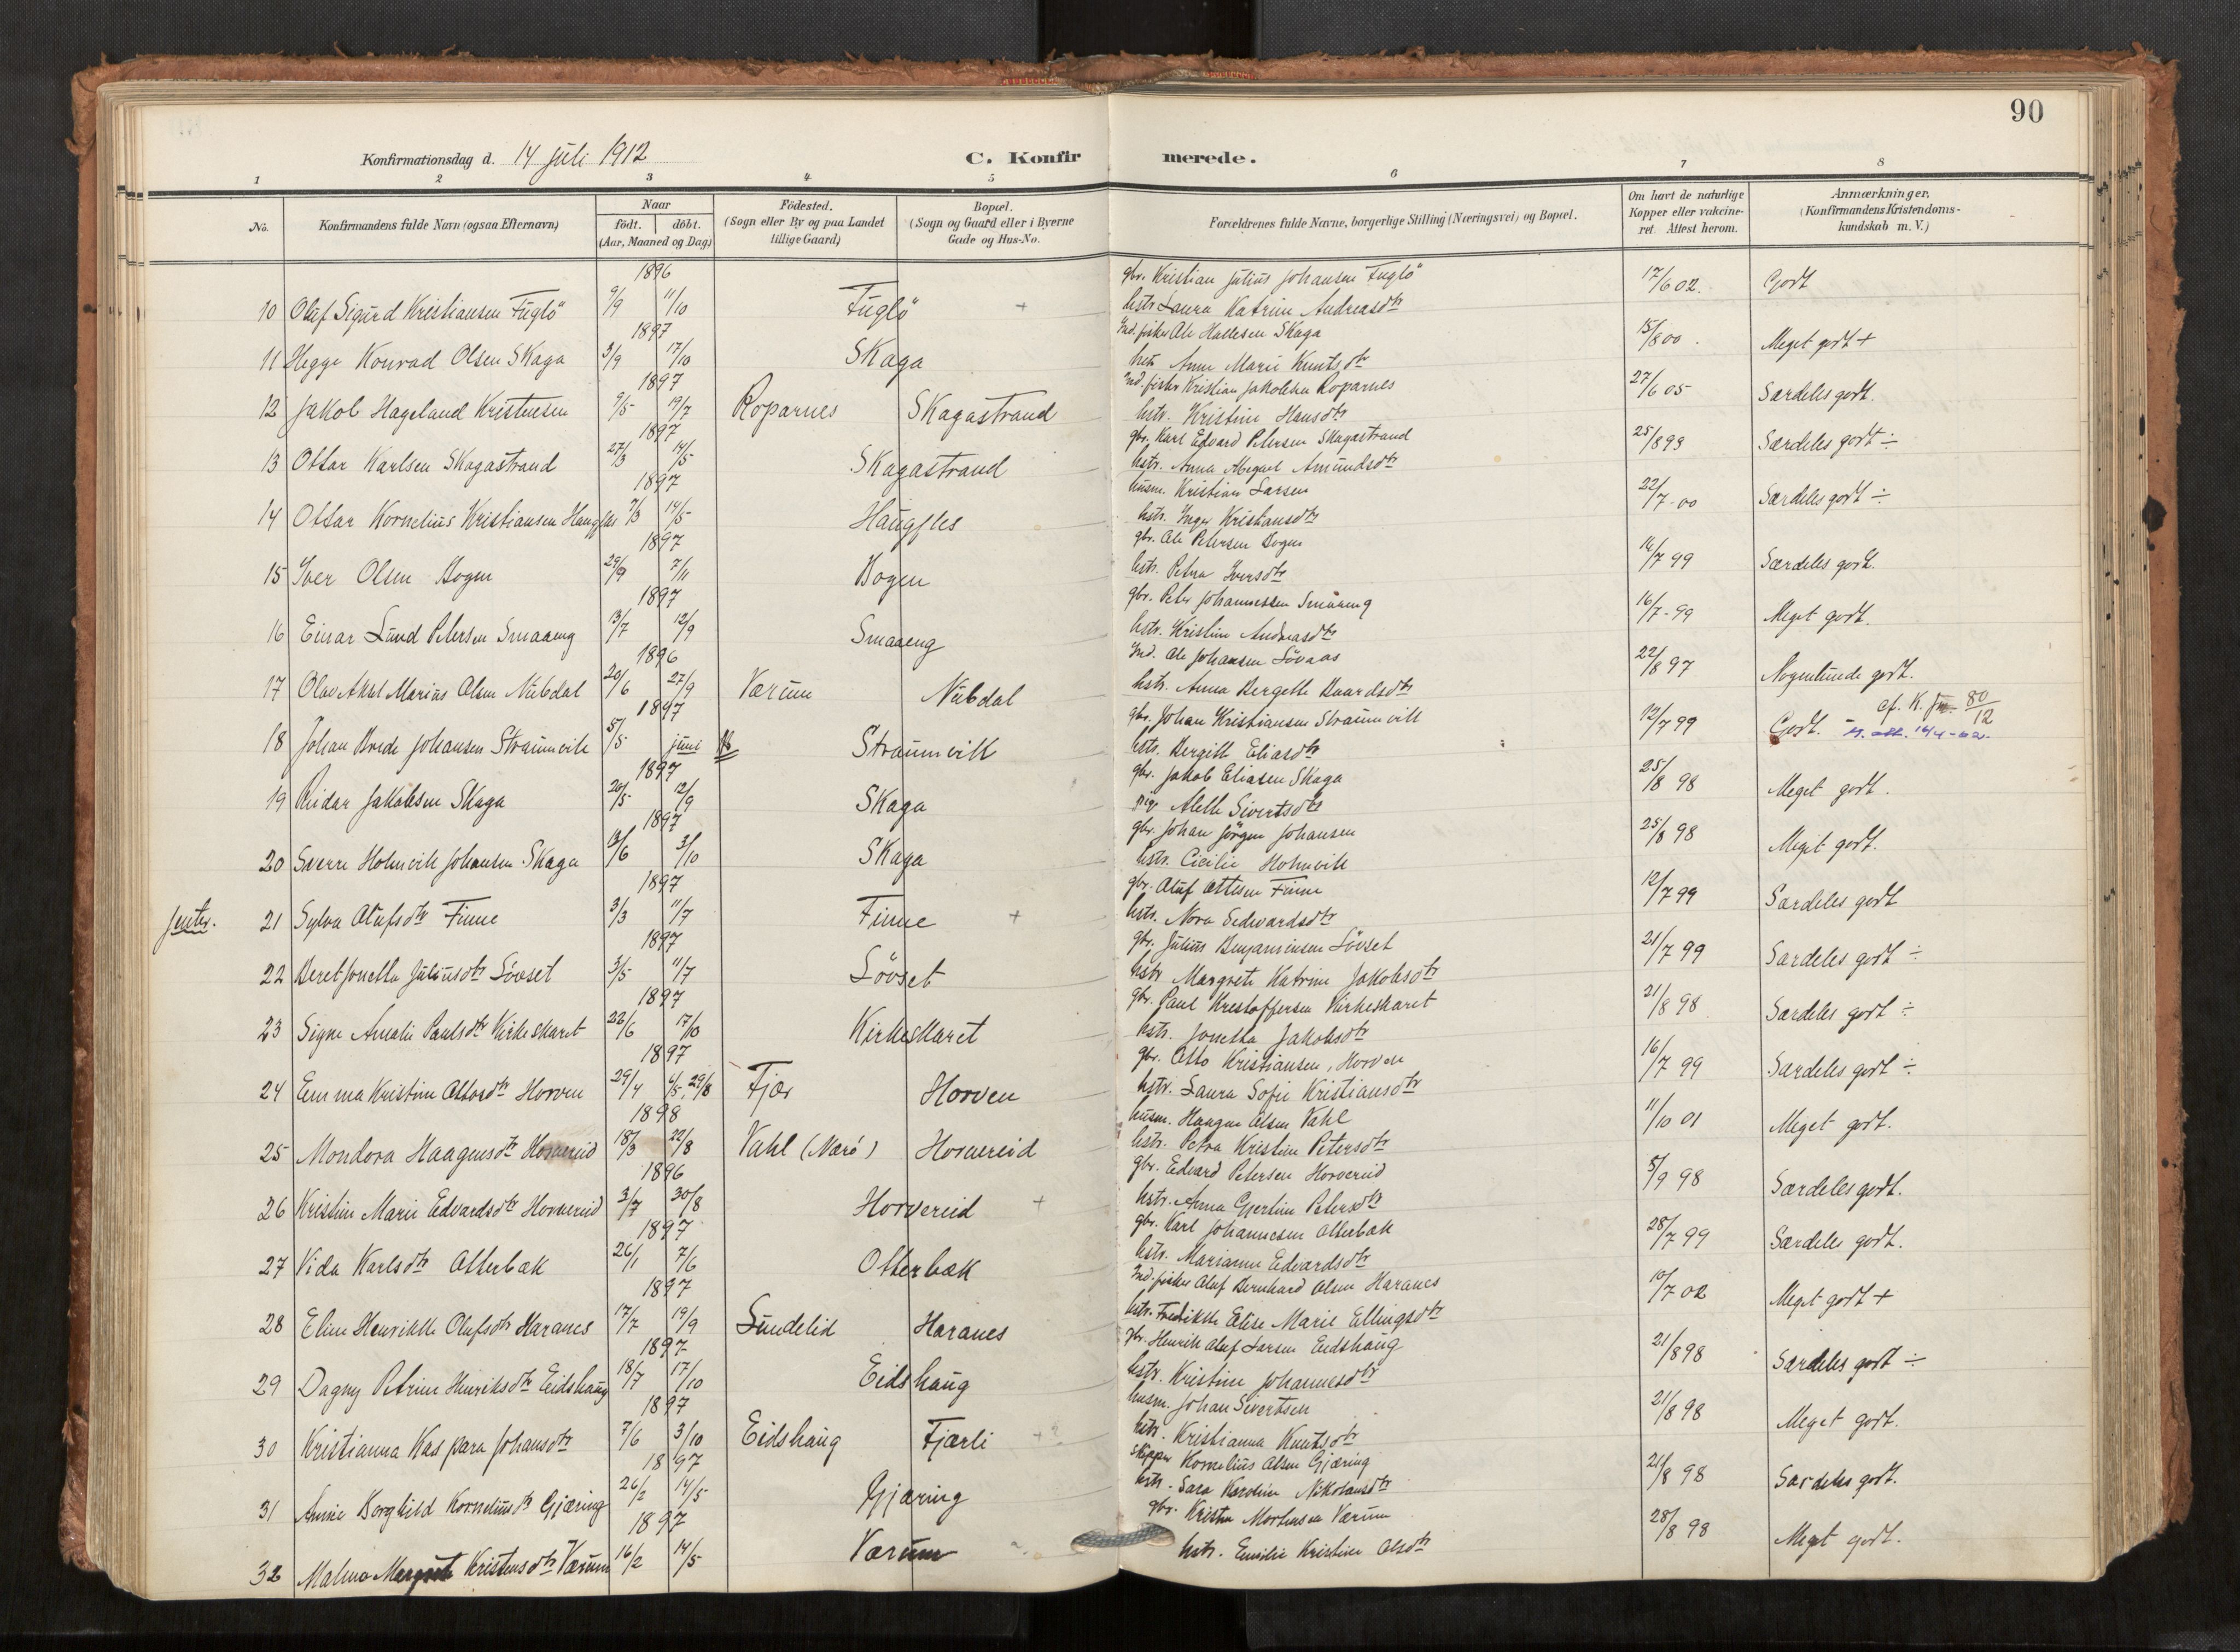 90
Konfirmationsdag d. 14 juli 1912
C. Konfirmerede.
1 2 3 4 5 6 7 8
No.
Konfirmandens fulde Navn (ogsaa Efternavn)
Naar
födt. döbt.
(Aar, Maaned og Dag)
Födested.
(Sogn eller By og paa Landet
tillige Gaard)
Bopæl.
(Sogn og Gaard eller i Byerne
Gade og Hus-No.
Forældrenes fulde Navne, borgerlige Stilling (Næringsvei) og Bopæl.
Om havt de naturlige
Kopper eller vakcine-
ret. Attest herom.
Anmærkninger.
(Konfirmandens Kristendoms-
kundskab m. V.)
1896 gbr. Kristian Julius Johansen Fuglö 17/6 02. Godt
10 Oluf Sigurd Kristiansen Fuglö 9/9 11/10 Fuglö + hstr Laura Katrine Andreasdtr
1897 Ind. fisker Ole Hallesen Skaga 15/8 00. Meget godt +
11 Hegge Konrad Olsen Skaga 3/9 17/10 Skaga hstr Anne Marie Knutsdtr
1897 Ind. fisker Kristian Jakobsen Roparnes 27/6 05 Særdeles godt.
12 Jakob Hageland Kristensen 9/5 19/7 Roparnes Skagastrand hstr. Kristine Hansdtr
1897 gbr. Karl Edvard Petersen Skagastrand 25/8 93 Særdeles godt ÷
13 Ottar Karlsen Skagastrand 27/3 14/5 Skagastrand hstr. Anna Amundsdtr
1897 husm. Kristian Larsen 22/7-00 Særdeles godt ÷
14 Ottar Kornelius Kristiansen Haugfles 7/3 14/5 Haugfles hstr. Inger Kristiansdtr
1897 gbr. Ole Petersen Bogen 14/7 99 Særdeles godt.
15 Iver Olsen Bogen 29/9 7/11 Bogen hstr. Petra Iversdtr
1897 gbr. Peter Johannessen Smaaeng 16/7-99 Meget godt.
16 Einar Lund Petersen Smaaeng 13/7 12/9 Smaaeng hstr. Kristine Andreasdtr
1896 Ind. Ole Johansen Lövaas 22/8 97 Nogenlunde godt.
17 Olav Aksel Marius Olsen Nubdal 20/6 27/9 Værum Nubdal hstr. Anna Bergette Baardsdtr
1897 gbr. Johan Kristiansen Straumvik 12/7 99 Godt. af. K. 80/12
18 Johan Brede Johansen Straumvik 5/5 juni Straumvik hstr. Bergitte Eliasdtr
1897 gbr. Jakob Eliasen Skaga 25/8 98 Meget godt.
19 Reidar Jakobsen Skaga 20/5 12/9 Skaga Alette Sivertsdtr
1897 gbr. Johan Jörgen Johansen 25/8 98 Meget godt.
20 Sverre Holmvik Johansen Skaga 13/6 3/10 Skaga hstr. Cicilie Holmvik
1897 gbr. Oluf Ottesen Finne 12/7 99 Særdeles godt
Jenter. 21 Sylva Olufsdtr Finne 3/3 11/7 Finne + hstr. Nora Sedwardsdtr
1897 gbr. Julius Benjaminsen Lövset 21/7 99 Særdeles godt ÷
22 Beret Jonetta Juliusdtr Lövset 3/5 11/7 Lövset hstr Margrete Katrine Jakobsdtr
1897 gbr. Paul Krestoffersen Kirkeskaret 21/8 98 Særdeles godt ÷
23 Signe Amalie Paulsdtr Kirkeskaret 22/6 17/10 Kirkeskaret hstr. Jonetta Jakobsdtr
1897 gbr. Otto Kristiansen, Horven 16/7 99 Særdeles godt ÷
24 Emma Kristine Ottosdtr Horven 29/4 4/5. 29/8 Fjær Horven hstr. Laura Sofie Kristiansdtr
1898 husm. Haagen Olsen Vahl 11/10 01 Meget godt.
25 Mondora Haagensdtr Horvereid 18/3 22/8 Vahl (Nærö) Horvereid hstr. Petra Kristine Petersdtr
1896 gbr. Edvard Petersen Horvereid 5/9 98 Særdeles godt.
26 Kristine Marie Edvardsdtr Horvereid 3/7 30/8 Horvereid + hstr. Anna Gjertine Petersdtr
1897 gbr. Karl Johannesen Otterbak 28/7 99 Særdeles godt.
27 Vida Karlsdtr Otterbak 26/1 7/6 Otterbak hstr. Marianne Edvardsdtr
1897 Ind. fisker Oluf Bernhard Olsen Haranes 10/7 02 Meget godt +
28 Eline Henrikke Olufsdtr Haranes 17/7 19/9 Sundelid Haranes hstr. Fredrikke Elise Marie Ellingsdtr
1897 gbr. Henrik Oluf Larsen Eidshaug 21/8 98 Særdeles godt ÷
29 Dagny Petrine Henriksdtr Eidshaug 18/7 17/10 Eidshaug hstr. Kristine Johannesdtr
1897 husm. Johan Sivertsen 21/8 98 Meget godt.
30 Kristianna Kaspara Johansdtr 7/6 3/10 Eidshaug Fjærli +? hstr. Kristianna Knutsdtr
1897 Skipper Kornelius Olsen Gjæring 21/8 98 Særdeles godt.
31 Anne Borghild Korneliusdtr Gjæring 26/2 14/5 Gjæring hstr. Sara Karoline Nikolausdtr
1897 gbr. Kristen Mortensen Værum 28/8 98 Meget godt.
32 Malena Margrete Kristensdtr Værum 16/2 14/5 Værum hstr. Emilie Kristine Olsdtr